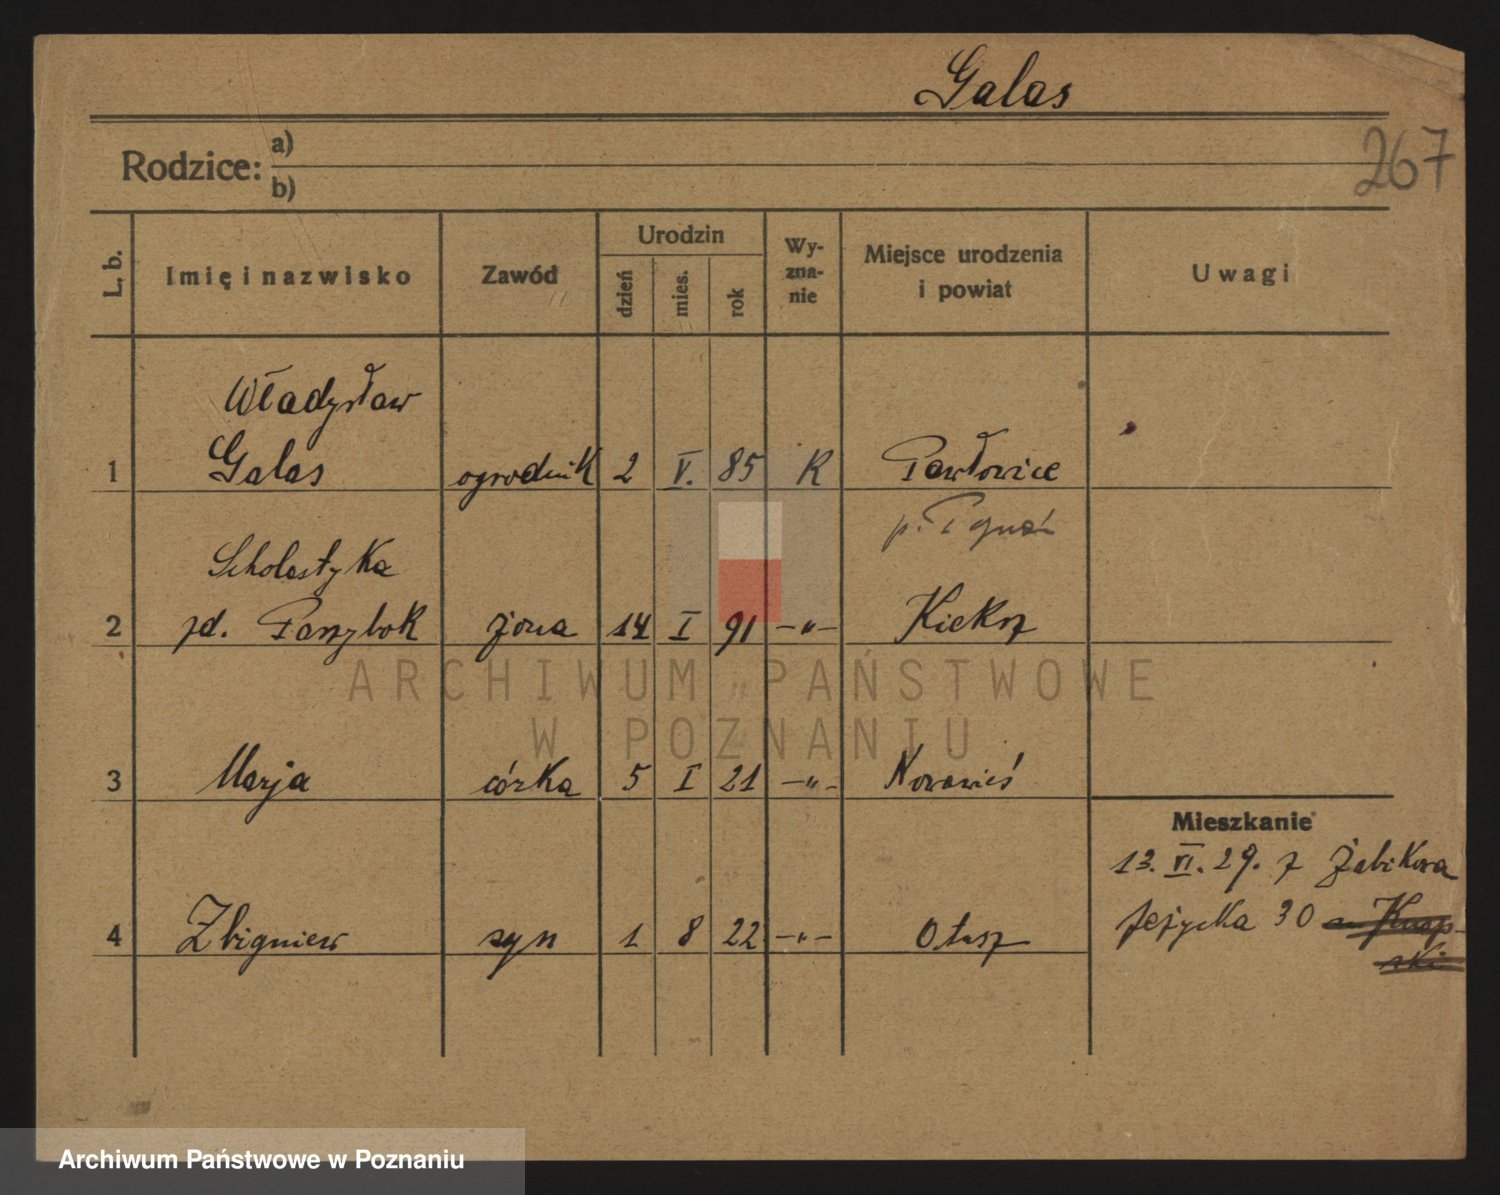 Galas
267
Rodzice: a)
b)
L. b. Imię i nazwisko Zawód Urodzin dzień mies. rok Wy-zna-nie Miejsce urodzenia i powiat Uwagi
Władysław
1 Galas ogrodnik 2 V. 85 K Pawłowice
p.
Scholastyka
2 Paszybok żona 14 I 91 —„— Kiekrz
3 Marja córka 5 I 21 —„— Nowawieś
4 Zbigniew syn 1 8 22 —„— Otusz
Mieszkanie
13. VI. 29. z Żabikowa
Jeżycka 30
ARCHIWUM PAŃSTWOWE
W POZNANIU
Archiwum Państwowe w Poznaniu